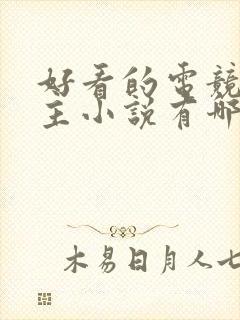 好看的電競
主小說有哪
木易日月人七